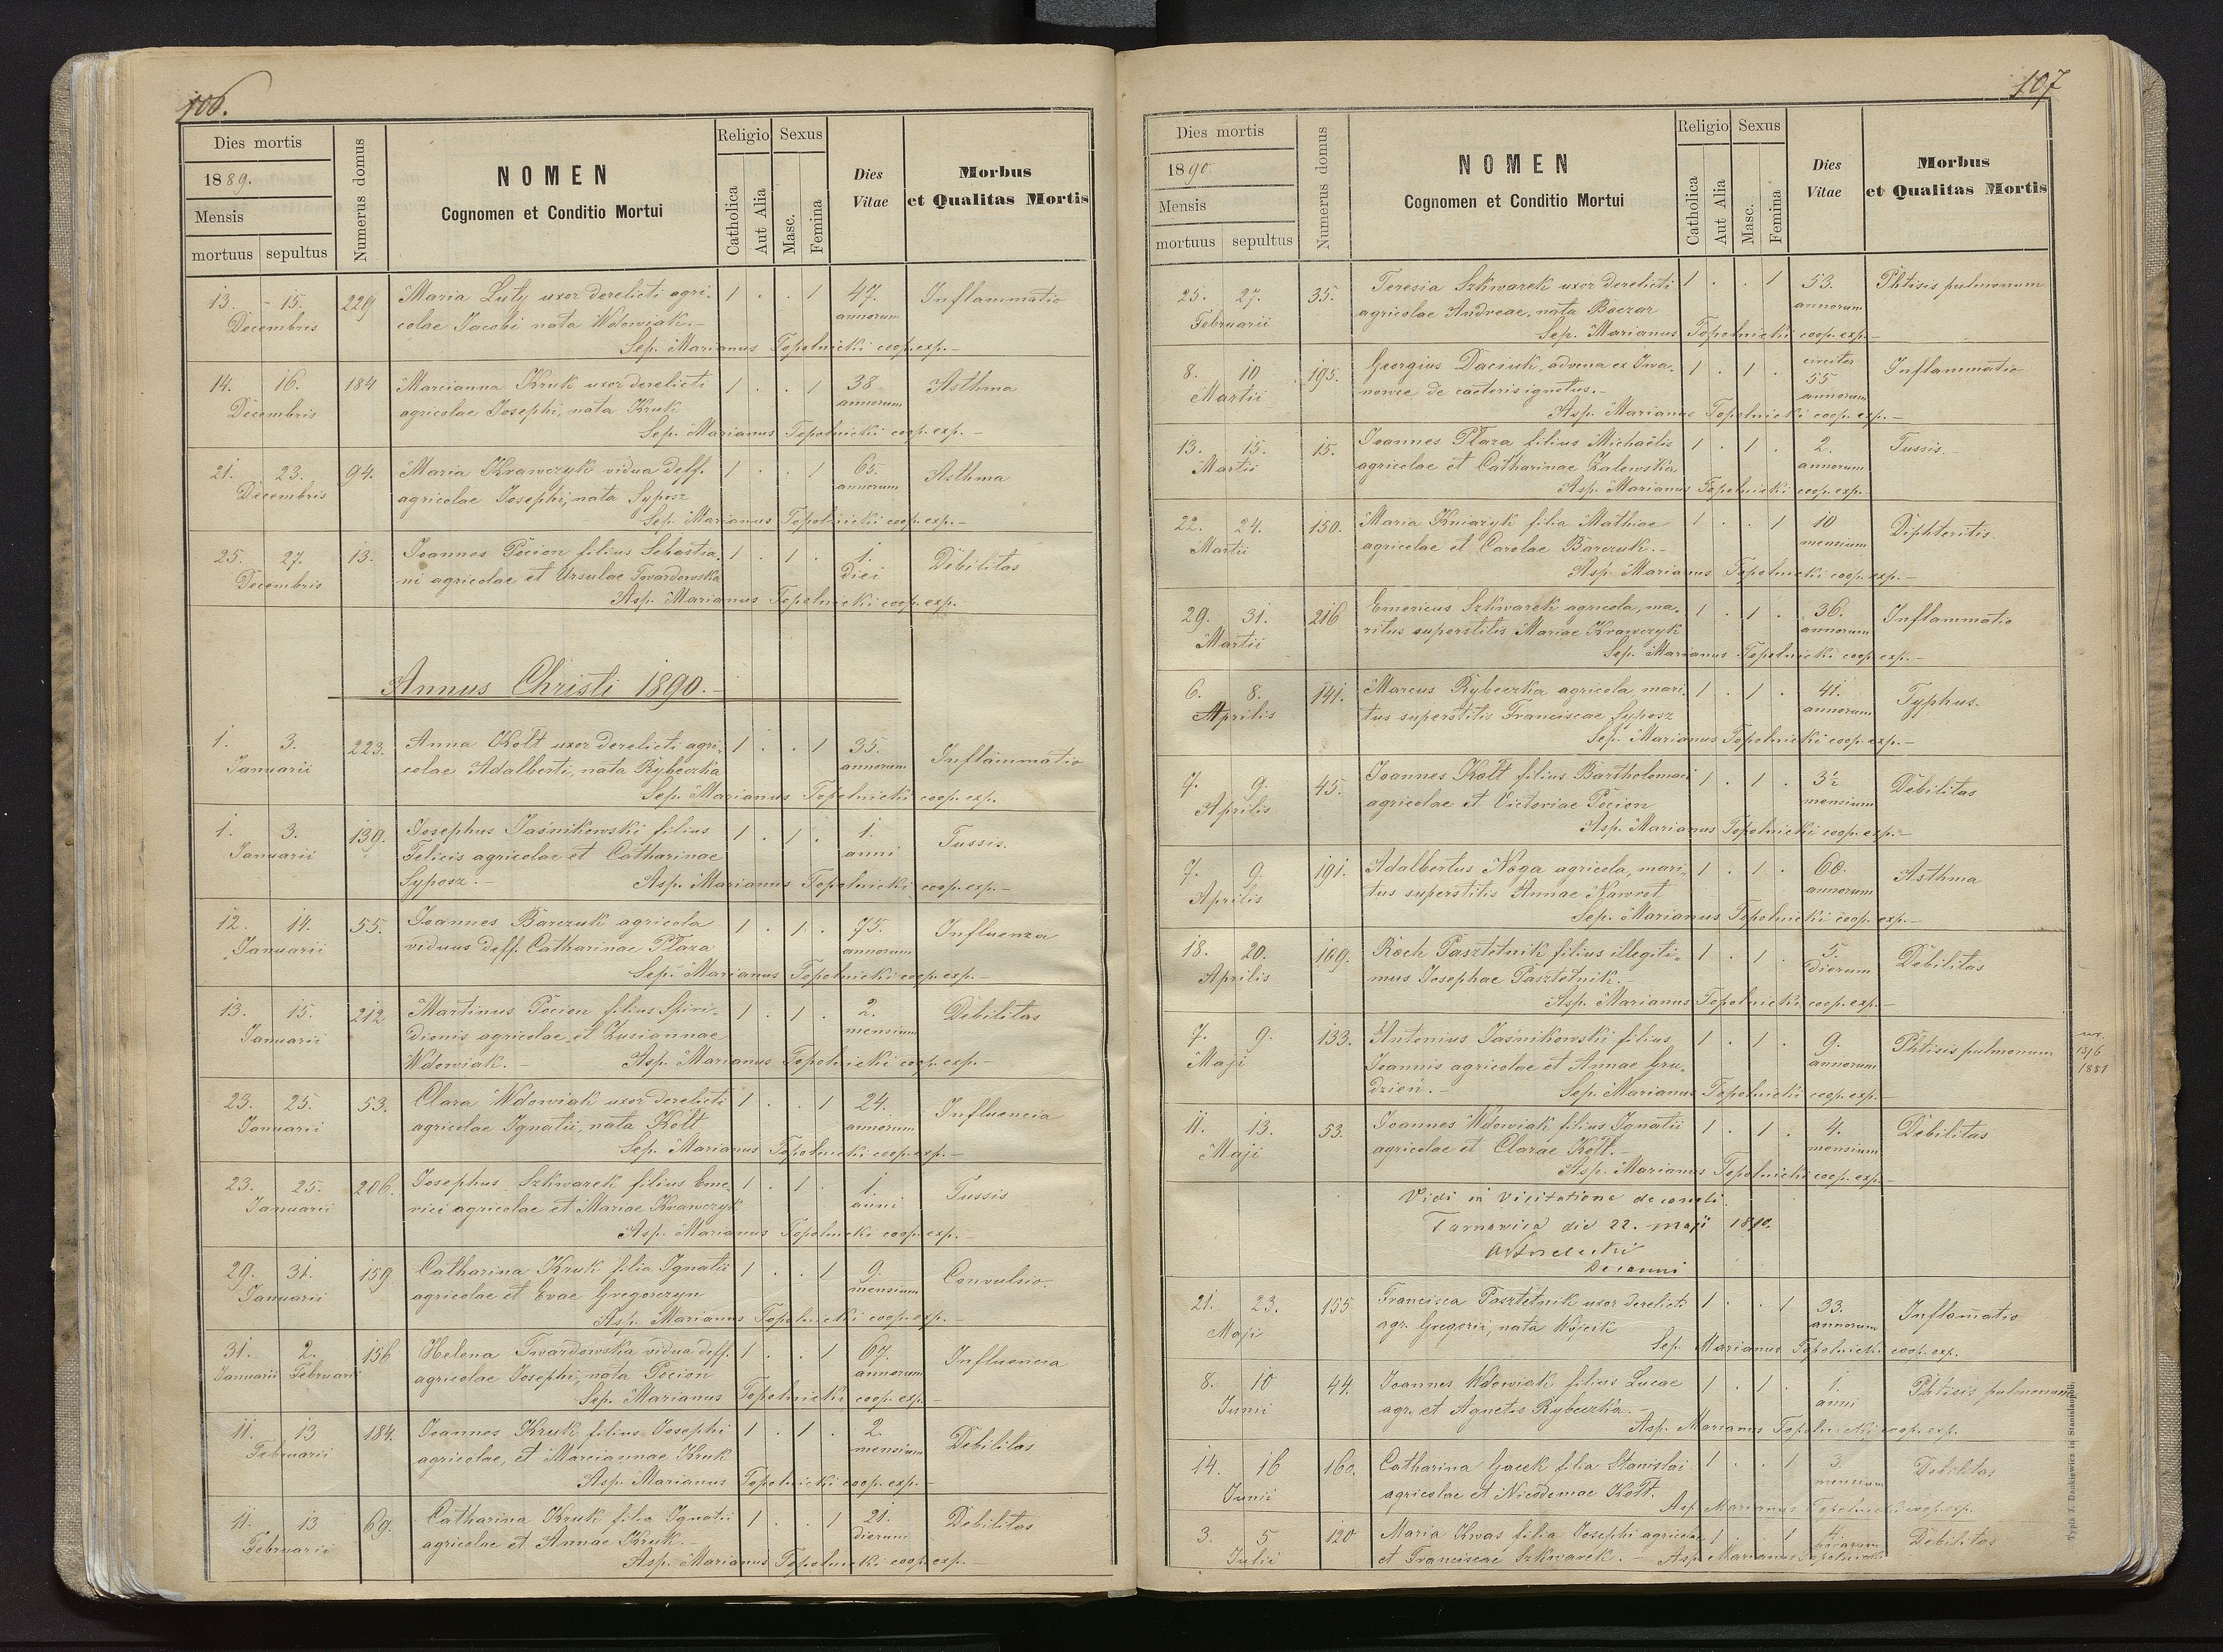 106.
Dies mortis
1889.
Mensis
mortuus sepultus
Numerus domus
NOMEN
Cognomen et Conditio Mortui
Religio
Catholica
Aut Alia
Sexus
Masc.
Femina
Dies
Vitae
Morbus
et Qualitas Mortis
13. - 15. 229 Maria Luty uxor derelicti agri- 1 . . 1 47. Inflammatio
Decembris colae Jacobi nata Wdowiak.- annorum
Sep. Marianus Topolnicki coop. exp.-
14. 16. 184 Marcianna Kruk uxor derelicti 1 . . 1 38 Asthma
Decembris agricolae Josephi, nata Kruk annorum
Sep. Marianus Topolnicki coop. exp.-
21. 23. 94. Maria Krawczyk vidua deff. 1 . . 1 65. Asthma
Decembris agricolae Josephi, nata Syposz annorum
Sep. Marianus Topolnicki coop. exp.-
25. 27. 13. Joannes Pocion filius Sebastia- 1 . 1 . 1. Debilitas
Decembris ni agricolae et Ursulae Twardowska diei
Asp. Marianus Topolnicki coop. exp.
Annus Christi 1890.-
1. 3. 223. Anna Kołt uxor derelicti agri- 1 . . 1 35. Inflammatio
Januarii colae Adalberti, nata Rybeczka annorum
Sep. Marianus Topolnicki coop. exp.
1. 3. 139. Josephus Jaśnikowski filius 1 . 1 . 1. Tussis.
Januarii Felicis agricolae et Catharinae anni
Syposz.- Asp. Marianus Topolnicki coop. exp.-
12. 14. 55. Joannes Barczuk agricola 1 . 1 . 75. Influenza
Januarii viduus deff. Catharinae Płaza annorum
Sep. Marianus Topolnicki coop. exp.-
13. 15. 212 Martinus Pocion filius Spiri- 1 . 1 . 2. Debilitas
Januarii dionis agricolae et Zusiannae mensium
Wdowiak.- Asp. Marianus Topolnicki coop. exp.-
23. 25. 53. Clara Wdowiak uxor derelicti 1 . . 1 24. Influencia
Januarii agricolae Ignatii, nata Kołt annorum
Sep. Marianus Topolnicki coop. exp.-
23. 25. 206. Josephus Szkwarek filius Eme- 1 . 1 . 1. Tussis
Januarii rici agricolae et Mariae Krawczyk anni
Asp. Marianus Topolnicki coop. exp.-
29. 31. 159 Catharina Kruk filia Ignatii 1 . . 1 9. Convulsio.
Januarii agricolae et Evae Gregorczyn mensium
Asp. Marianus Topolnicki coop. exp.-
31. 2. 156 Helena Twardowska vidua deff. 1 . . 1 67. Influencia
Januarii Februarii agricolae Josephi, nata Pocion annorum
Sep. Marianus Topolnicki coop. exp.-
11. 13 184. Joannes Kruk filius Josephi 1 . 1 . 2. Debilitas
Februarii agricolae, et Marciannae Kruk mensium
Asp. Marianus Topolnicki coop. exp.-
11. 13 69. Catharina Kruk filia Ignatii 1 . . 1 21. Debilitas
Februarii agricolae et Annae Kruk.- dierum
Asp. Marianus Topolnicki coop. exp.-
107
Dies mortis
1890
Mensis
mortuus sepultus
Numerus domus
NOMEN
Cognomen et Conditio Mortui
Religio
Catholica
Aut Alia
Sexus
Masc.
Femina
Dies
Vitae
Morbus
et Qualitas Mortis
25. 27. 35. Teresia Szkwarek uxor derelicti 1 . . 1 53. Phtisis pulmonum
Februarii agricolae Andreae, nata Boczar annorum
Sep. Marianus Topolnicki coop. exp.-
8. 10 195. Georgius Daciuk, advena ex Iwa- 1 . 1 . circiter 55 Inflammatio
Martii nowce de caeteris ignotus.- annorum
Asp. Marianus Topolnicki coop. exp.-
13. 15. 15. Joannes Płaza filius Michaëlis 1 . 1 . 2. Tussis
Martii agricolae et Catharinae Zalewska annorum
Asp. Marianus Topolnicki coop. exp.
22. 24. 150. Maria Kniażyk filia Mathiae 1 . . 1 10 Diphteritis
Martii agricolae et Carolae Barczuk.- mensium
Asp. Marianus Topolnicki coop. exp.-
29. 31. 216 Emericus Szkwarek agricola, ma- 1 . 1 . 36. Inflammatio
Martii ritus superstitis Mariae Krawczyk annorum
Sep. Marianus Topolnicki coop. exp.-
6. 8. 141. Marcus Rybeczka agricola mari- 1 . 1 . 41. Typhus.
Aprilis tus superstitis Franciscae Syposz annorum
Sep. Marianus Topolnicki coop. exp.-
7. 9. 45. Joannes Kołt filius Bartholomaei 1 . 1 . 3½ Debilitas
Aprilis agricolae et Victoriae Pocion mensium
Asp. Marianus Topolnicki coop. exp.-
7. 9. 191. Adalbertus Noga agricola, mari- 1 . 1 . 60. Asthma
Aprilis tus superstitis Annae Nawrot annorum
Sep. Marianus Topolnicki coop. exp.-
18. 20. 169. Roch Pasztetnik filius illegiti- 1 . 1 . 5. Debilitas
Aprilis mus Josephae Pasztetnik. dierum
Asp. Marianus Topolnicki coop. exp.-
7. 9. 133. Antonius Jaśnikowski filius 1 . 1 . 9. Phtisis pulmonum
Maji Joannis agricolae et Annae Gru- annorum
dzień.- Sep. Marianus Topolnicki coop. exp.-
13/6
1881
11. 13. 53. Joannes Wdowiak filius Ignatii 1 . 1 . 4. Debilitas
Maji agricolae et Clarae Kołt. mensium
Asp. Marianus Topolnicki coop. exp.-
Vidi in Visitatione decanali
Tarnawica die 22. maji 1890.
Decanus
21. 23. 155 Francisca Pasztetnik uxor derelicti 1 . . 1 33. Inflamatio
Maji agr. Gregorii, nata Wójcik annorum
Sep. Marianus Topolnicki coop. exp.
8. 10 44. Joannes Wdowiak filius Lucae 1 . 1 . 1. Phtisis pulmonum
Junii agr. et Agnetis Rybeczka.- anni
Asp. Marianus Topolnicki coop. exp.
14. 16 160. Catharina Gacek filia Stanislai 1 . . 1 3. Debilitas
Junii agricolae et Nicodemae Kołt. mensium
Asp. Marianus Topolnicki coop. exp.
3. 5 120 Maria Kwas filia Josephi agricolae 1 . . 1 horarum Debilitas
Julii et Franciscae Szkwarek.- Asp. Marianus Topolnicki
Typis J. Dankiewicz in Stanislaopoli.